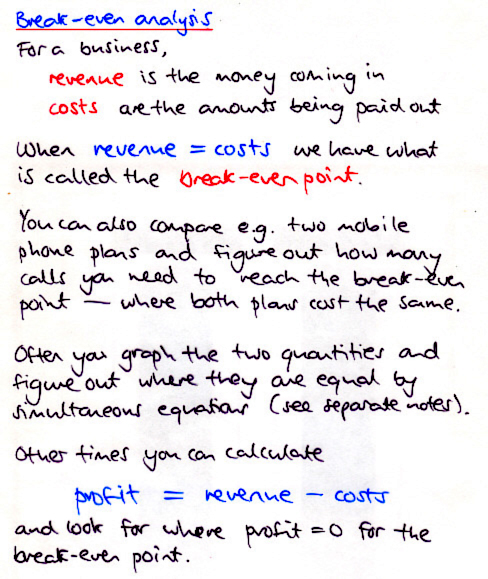 Break-even analysis
For a business,
revenue is the money coming in
costs are the amounts being paid out
When revenue = costs we have what
is called the break-even point.
You can also compare e.g. two mobile
phone plans and figure out how many
calls you need to reach the break-even
point — where both plans cost the same.
Often you graph the two quantities and
figure out where they are equal by
simultaneous equations (see separate notes).
Other times you can calculate
profit = revenue - costs
and look for where profit = 0 for the
break-even point.